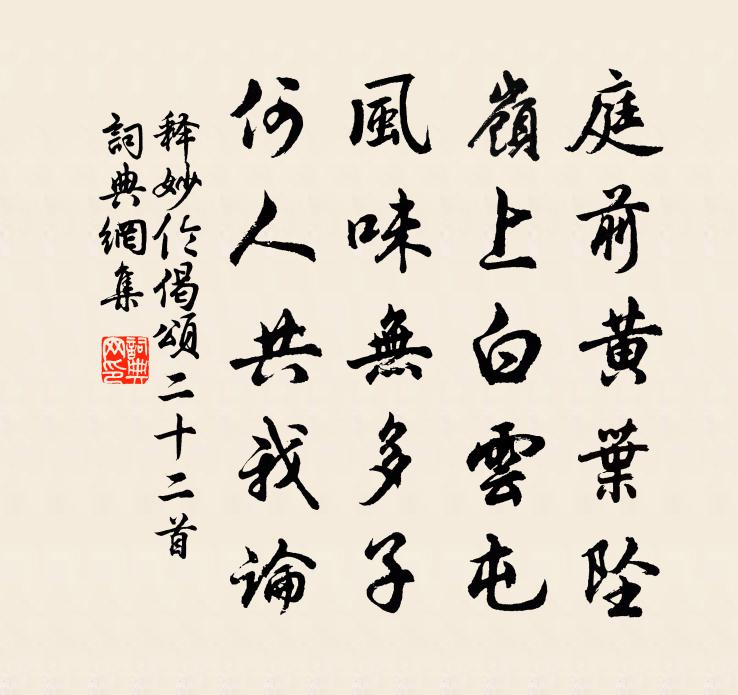 庭前黄葉墜
嶺上白雲屯
風味無多子
何人共我論
释妙伦偈頌二十二首
詞典網集
詞典網印